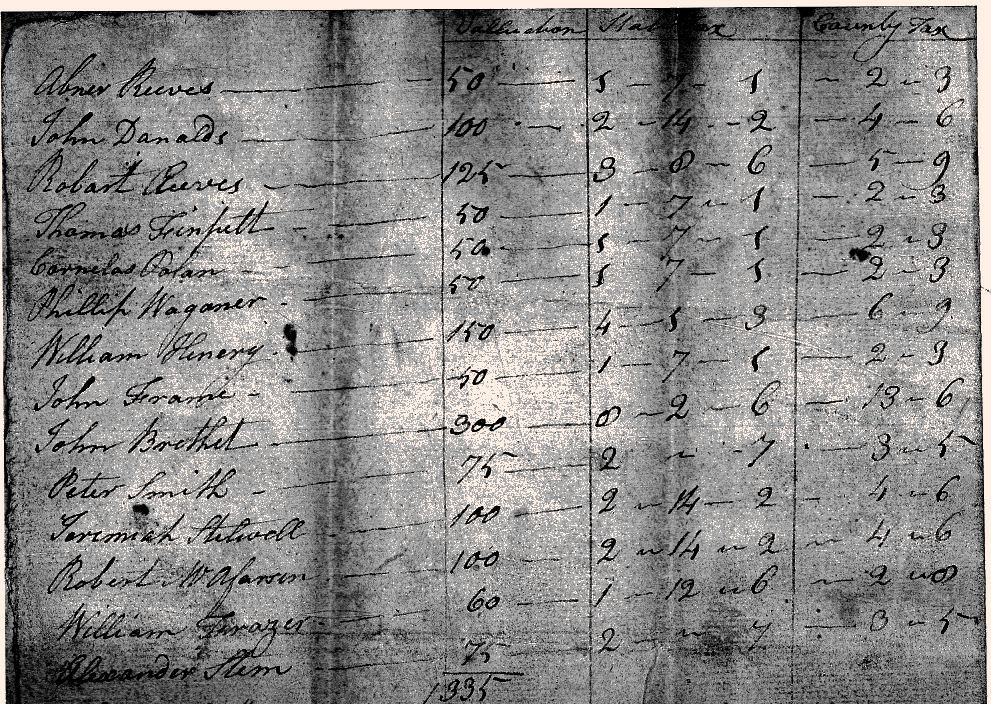 Valluation State Tax County Tax
Abner Reeves — 50 — 1 — 7 — 1 — 2 — 3
John Danalds — 100 — 2 — 14 — 2 — 4 — 6
Robart Reeves — 125 — 3 — 8 — 6 — 5 — 9
Thomas — 50 — 1 — 7 — 1 — 2 — 3
Cornelas Dolan — 50 — 1 — 7 — 1 — 2 — 3
Phillip Waganer — 50 — 1 — 7 — 1 — 2 — 3
William Hinery — 150 — 4 — 1 — 3 — 6 — 9
John Frame — 50 — 1 — 7 — 1 — 2 — 3
John Brethet — 300 — 8 — 2 — 6 — 13 — 6
Peter Smith — 75 — 2 — " — 7 — 3 — 5
Jeremiah Stilwell — 100 — 2 — 14 — 2 — 4 — 6
Robert — 100 — 2 — 14 — 2 — 4 — 6
William Frazer — 60 — 1 — 12 — 6 — 2 — 8
Alexander Stem — 75 — 2 — " — 7 — 3 — 5
1335